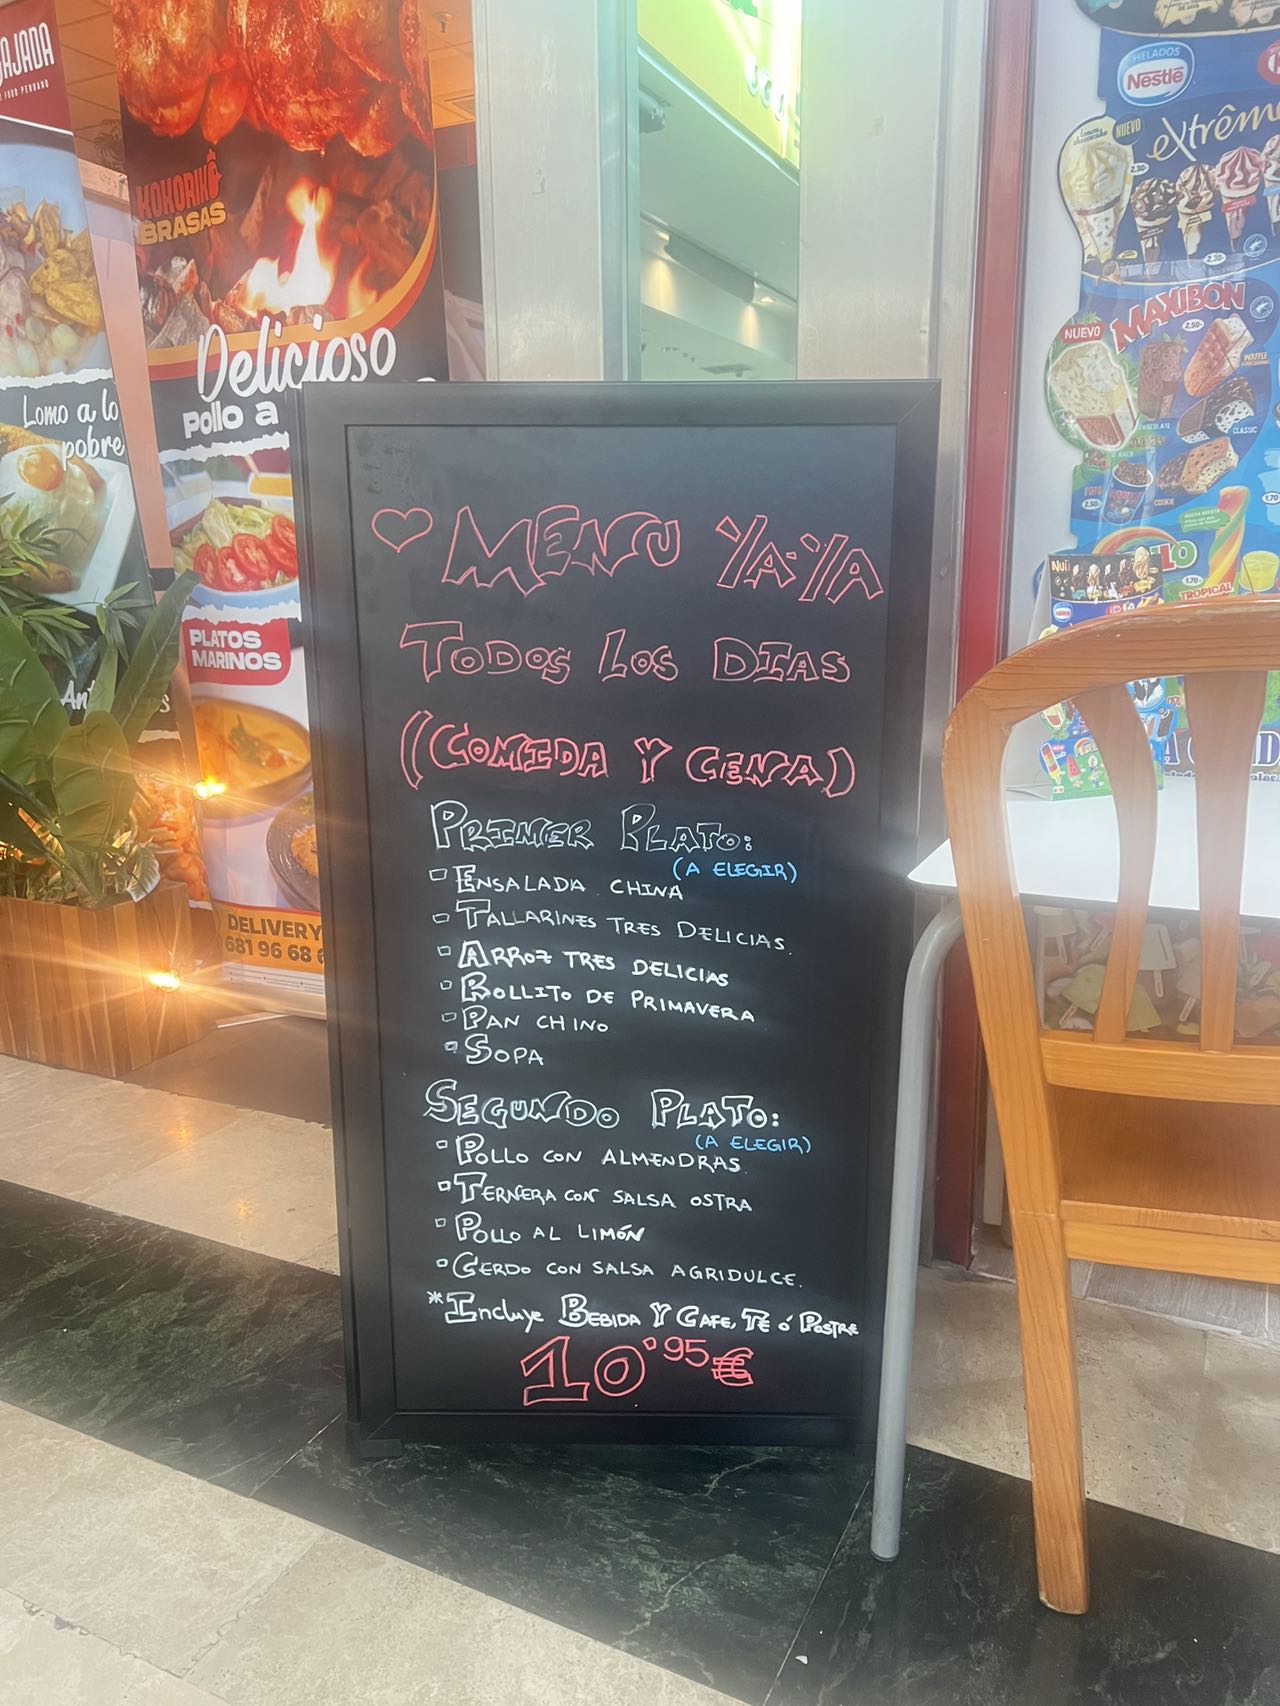 AJADA
FOOD PERUANO
Lomo a lo
pobre
KOKORIKÓ
BRASAS
Delicioso
pollo a
PLATOS
MARINOS
DELIVERY
681 96 68
♡ MENU YA·YA
TODOS LOS DIAS
(COMIDA Y CENA)
PRIMER PLATO:
(A ELEGIR)
▫ ENSALADA CHINA
▫ TALLARINES TRES DELICIAS.
▫ ARROZ TRES DELICIAS
▫ ROLLITO DE PRIMAVERA
▫ PAN CHINO
▫ SOPA
SEGUNDO PLATO:
(A ELEGIR)
▫ POLLO CON ALMENDRAS
▫ TERNERA CON SALSA OSTRA
▫ POLLO AL LIMÓN
▫ CERDO CON SALSA AGRIDULCE.
*Incluye BEBIDA Y CAFE, TÉ ó POSTRE
10'95€
HELADOS
Nestlé
NUEVO
extrême
2.30
2.30
MAXIBON
NUEVO
2.50
WAFFLE
CLASSIC
COOKIE
1.70
1.70
TROPICAL
Nuii